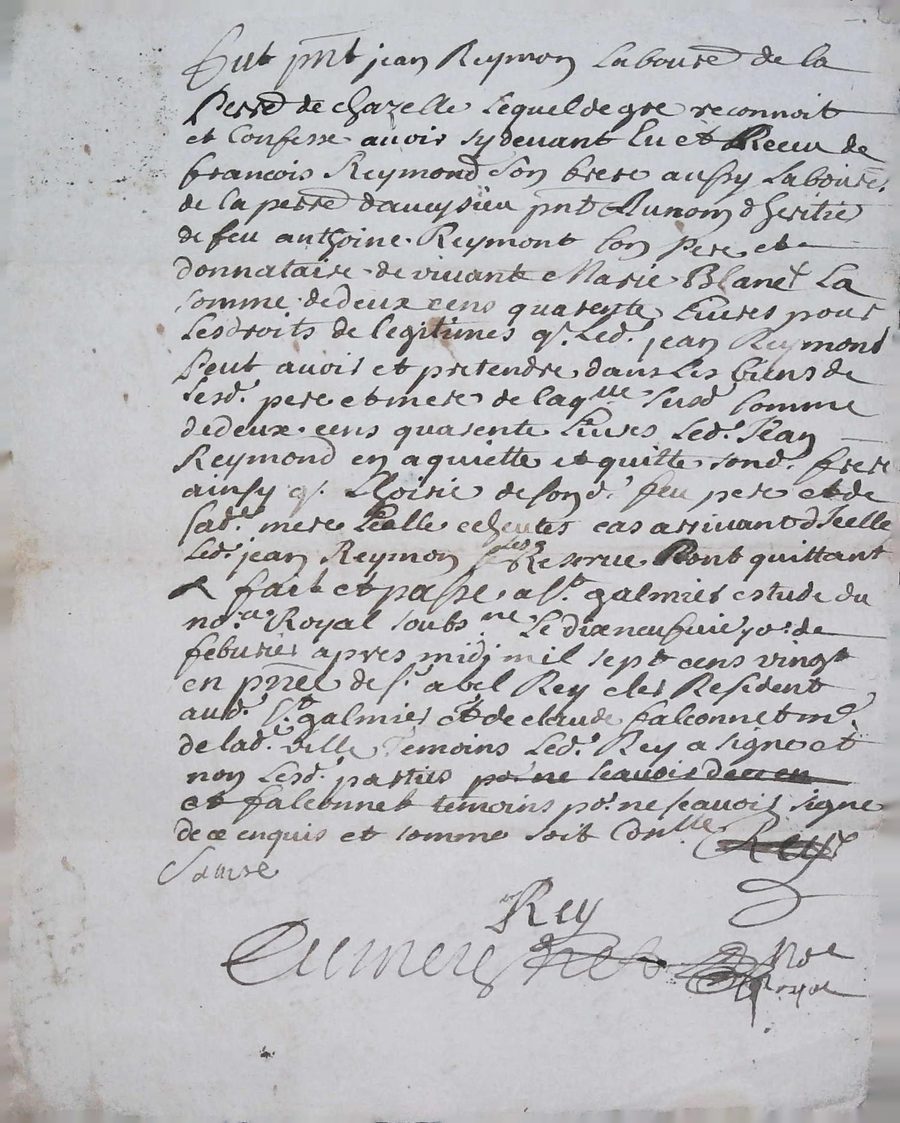 fut pnt jean Reymon Laboure de la
Perre de chazelle Lequel de gre reconnoit
et Confesse avoir sy devant Eu et Receu de
francois Reymond son frere aussy Laboure
de la perre d'aveysieu pnt Au nom d'heritie
de feu anthoine Reymont son Pere et
donnataire de vivante Marie Blanc La
somme de deux cens quarente Livres pour
Les droits de legitimes q. Led. jean Reymond
Peut avoir et pretendre dans Les biens de
Lesd. pere et mere de laqlle susd. somme
de deux cens quarente Livres Led. Jean
Reymond en a quiette et quitte sond. frere
ainsy q. Lhoirie de sond. feu pere et de
sad. mere cas arrivant d'Icelle
Led. jean Reymon se Reserve Dont quittant
fait et passe a St. galmier estude du
no.re Royal soubs.ne Le dixneufvie jo. de
febvrier apres midj mil sept cens vingt
en pnce de s. abel Rey cler Resident
aud. St. galmier et de claude falconnet m.
de lad. ville Temoins Led. Rey a signe et
non Lesd. parties po. ne scavoir de ce en
et falconnet temoins po. ne scavoir signe
de ce enquis et somme soit Conlle Rey
Rey
No.re
Royal